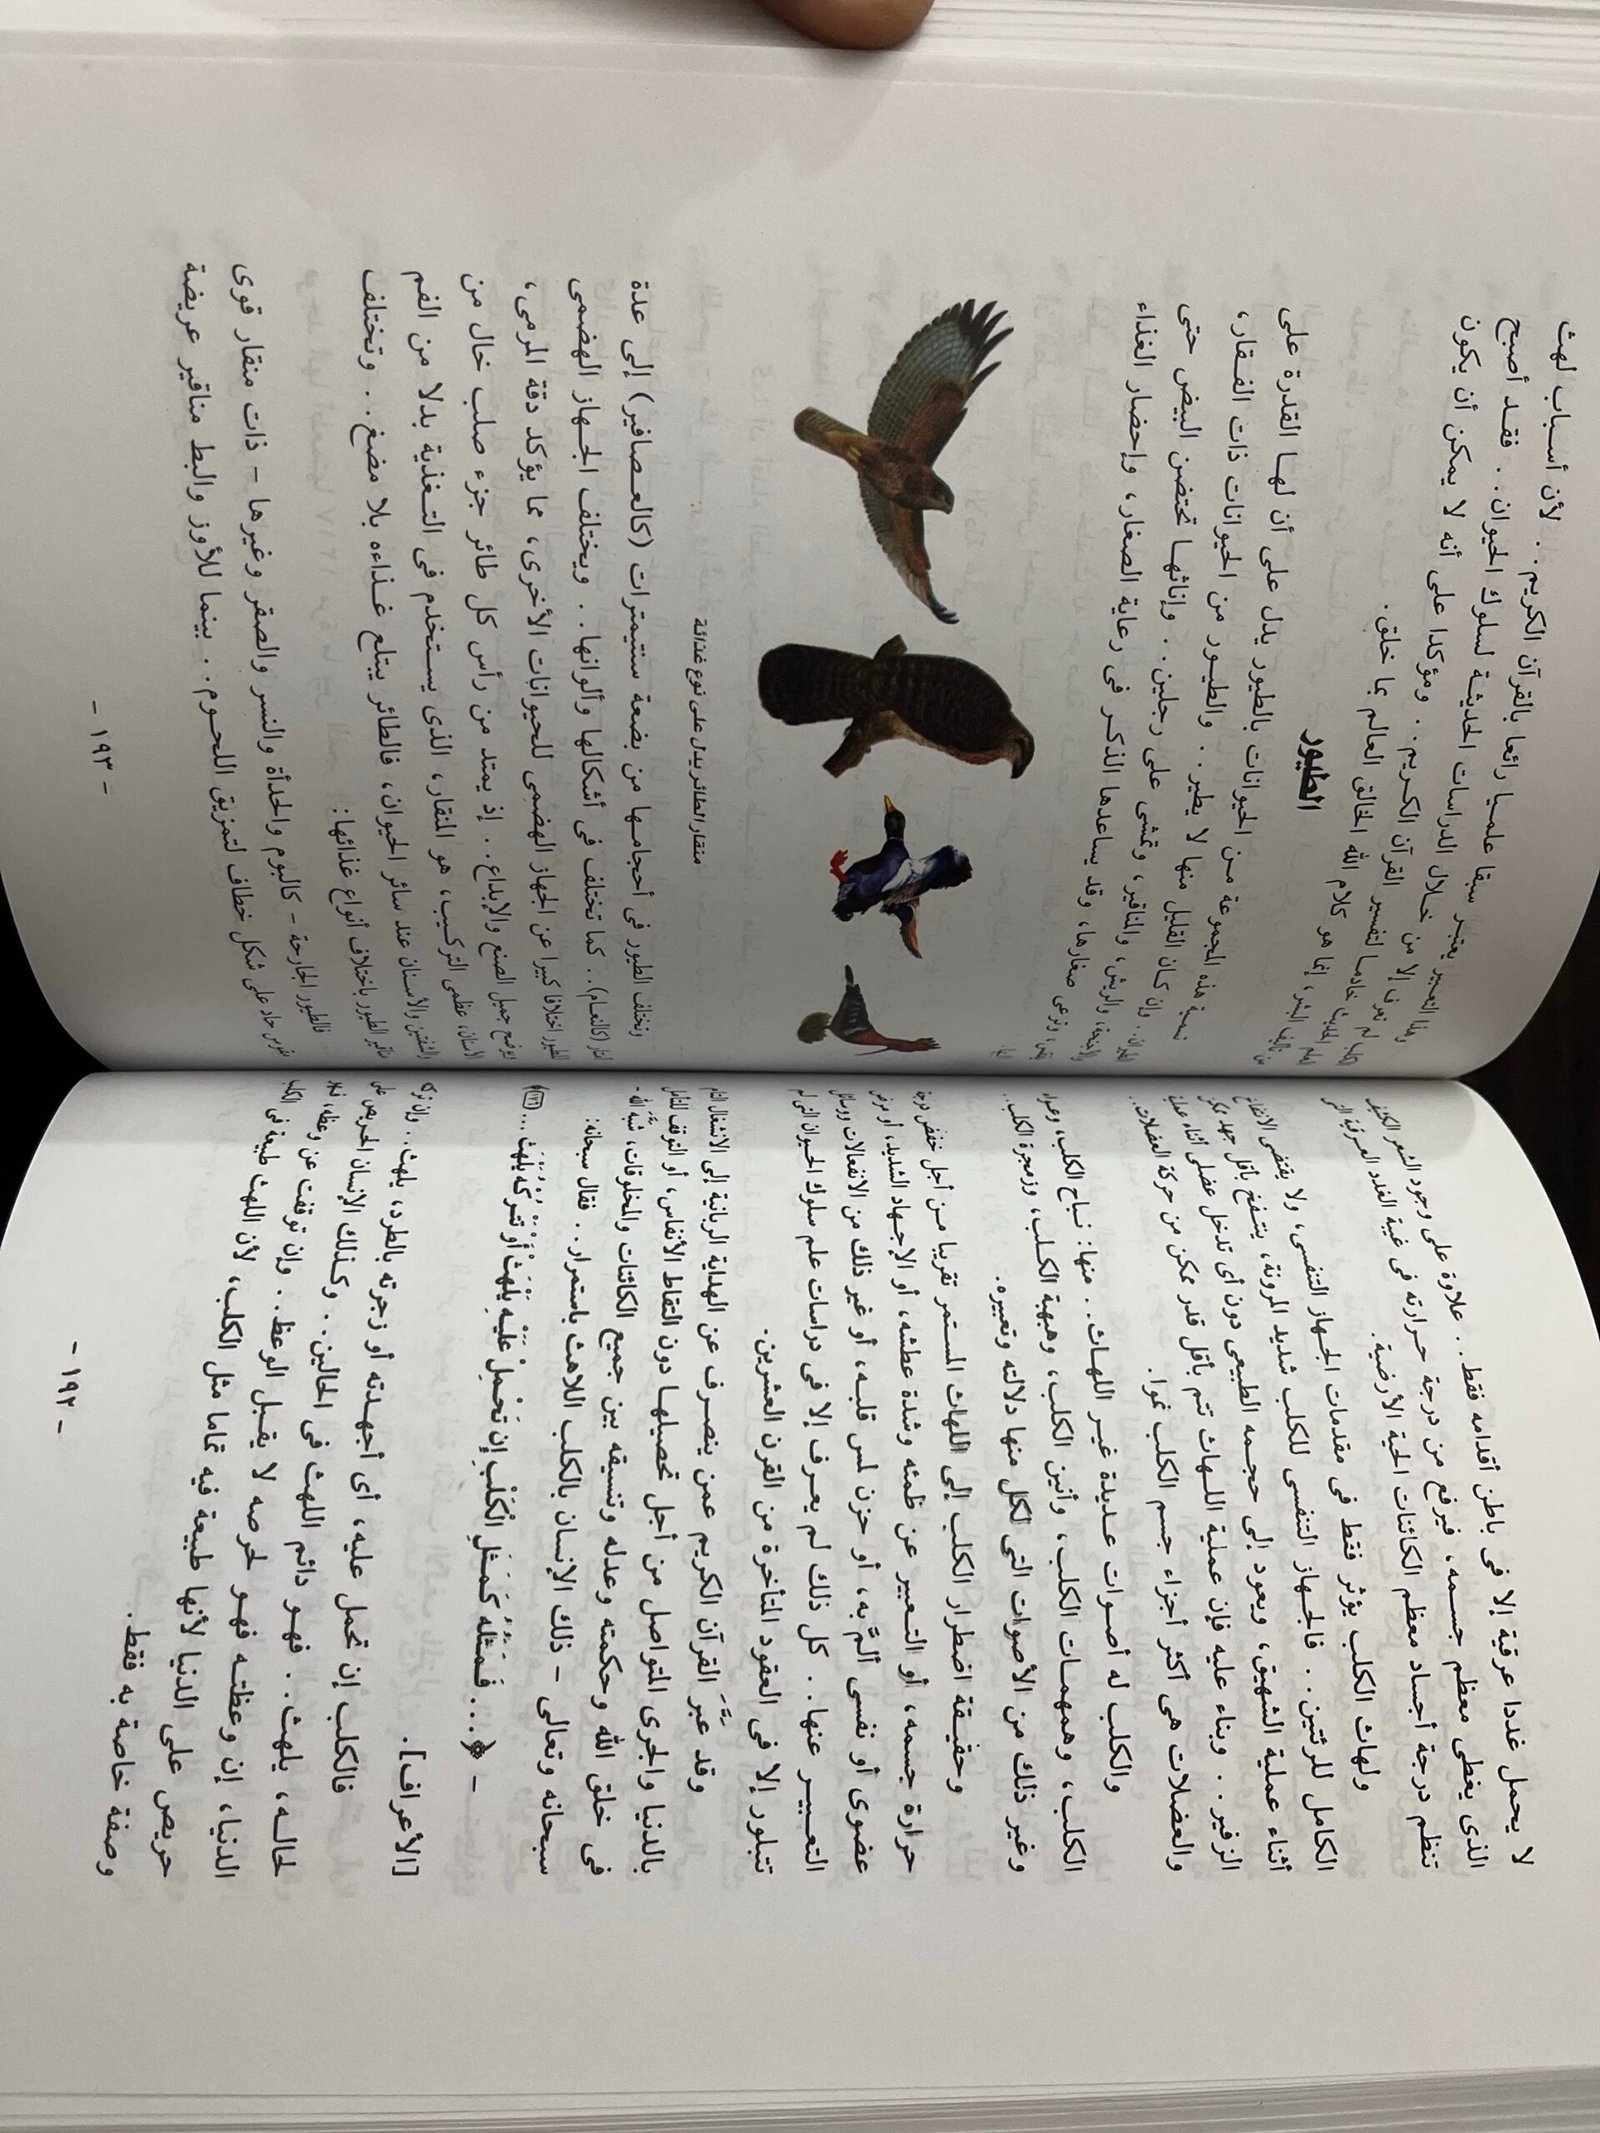 لا يحمل غددا عرقية إلا فى باطن أقدامه فقط.. علاوة على وجود الشعر الكثيف
الذى يغطى معظم جسمه، فيرفع من درجة حرارته فى غيبة الغدد العرقية التى
تنظم درجة أجساد معظم الكائنات الحية الأرضية.
ولهاث الكلب يؤثر فقط فى مقدمات الجهاز التنفسى، ولا يقتضى الانتفاخ
الكامل للرئتين.. فالجهاز التنفسى للكلب شديد المرونة، ينتفخ بأقل جهد ممكن
أثناء عملية الشهيق، ويعود إلى حجمه الطبيعى دون أى تدخل عضلى أثناء عملية
الزفير.. وبناء عليه فإن عملية اللهاث تتم بأقل قدر ممكن من حركة العضلات..
والعضلات هى أكثر أجزاء جسم الكلب نموا.
والكلب له أصوات عديدة غير اللهاث.. منها: نباح الكلب، وعواء
الكلب، وهمهمات الكلب، وأنين الكلب، وهبهبة الكلب، وزمجرة الكلب..
وغير ذلك من الأصوات التى لكل منها دلالته وتعبيره.
وحقيقة اضطرار الكلب إلى اللهاث المستمر تقريبا من أجل خفض درجة
حرارة جسمه، أو التعبير عن ظمئه وشدة عطشه، أو الإجهاد الشديد، أو مرض
عضوى أو نفسى ألمَّ به، أو حزن لمس قلبه، أو غير ذلك من الانفعالات ووسائل
التعبير عنها.. كل ذلك لم يعرف إلا فى دراسات علم سلوك الحيوان التى لم
تتبلور إلا فى العقود المتأخرة من القرن العشرين.
وقد عبَّر القرآن الكريم عمن ينصرف عن الهداية الربانية إلى الانشغال التام
بالدنيا والجرى المتواصل من أجل تحصيلها دون التقاط الأنفاس، أو التوقف للتأمل
فى خلق الله وحكمته وعدله وتنسيقه بين جميع الكائنات والمخلوقات، شبَّه الله -
سبحانه وتعالى - ذلك الإنسان بالكلب اللاهث باستمرار.. فقال سبحانه:
- ﴿... فَمَثَلُهُ كَمَثَلِ الْكَلْبِ إِن تَحْمِلْ عَلَيْهِ يَلْهَثْ أَوْ تَتْرُكْهُ يَلْهَثْ ... ﴿١٧٦﴾
[الأعراف].
فالكلب إن تحمل عليه، أى أجهدته أو زجرته بالطرد، يلهث.. وإن تركته
لحاله، يلهث.. فهو دائم اللهث فى الحالين.. وكذلك الإنسان الحريص على
الدنيا، إن وعظته فهو لحرصه لا يقبل الوعظ.. وإن توقفت عن وعظه، فهو
حريص على الدنيا لأنها طبيعة فيه تماما مثل الكلب، لأن اللهث طبيعة فى الكلب
وصفة خاصة به فقط.
- ١٩٢ -
وهذا التعبير يعتبر سبقا علميا رائعا بالقرآن الكريم.. لأن أسباب لهث
الكلب لم تعرف إلا من خلال الدراسات الحديثة لسلوك الحيوان.. فقد أصبح
العلم الحديث خادما لتفسير القرآن الكريم.. ومؤكدا على أنه لا يمكن أن يكون
من تأليف البشر، إنما هو كلام الله الخالق العالم بما خلق.
الطيور
تسمية هذه المجموعة من الحيوانات بالطيور يدل على أن لها القدرة على
الطيران.. وإن كان القليل منها لا يطير.. والطيور من الحيوانات ذات الفقار،
والأجنحة، والريش، والمناقير، وتمشى على رجلين.. وإناثها تحتضن البيض حتى
يفقس، وترعى صغارها، وقد يساعدها الذكر فى رعاية الصغار، وإحضار الغذاء
لها.
منقار الطائر يدل على نوع غذائه
وتختلف الطيور فى أحجامها من بضعة سنتيمترات (كالعصافير) إلى عدة
أمتار (كالنعام).. كما تختلف فى أشكالها وألوانها.. ويختلف الجهاز الهضمى
للطيور اختلافا كبيرا عن الجهاز الهضمى للحيوانات الأخرى، مما يؤكد دقة المرمى،
ويوضح جميل الصنع والإبداع.. إذ يمتد من رأس كل طائر جزء صلب خال من
الأسنان، عظمى التركيب، هو المنقار، الذى يستخدم فى التغذية بدلا من الفم
والشفتين والأسنان عند سائر الحيوان، فالطائر يبتلع غذاءه بلا مضغ.. وتختلف
مناقير الطيور باختلاف أنواع غذائها:
فالطيور الجارحة - كالبوم والحدأة والنسر والصقر وغيرها - ذات منقار قوى
مقوس حاد على شكل خطاف لتمزيق اللحوم.. بينما للأوز والبط مناقير عريضة
- ١٩٣ -